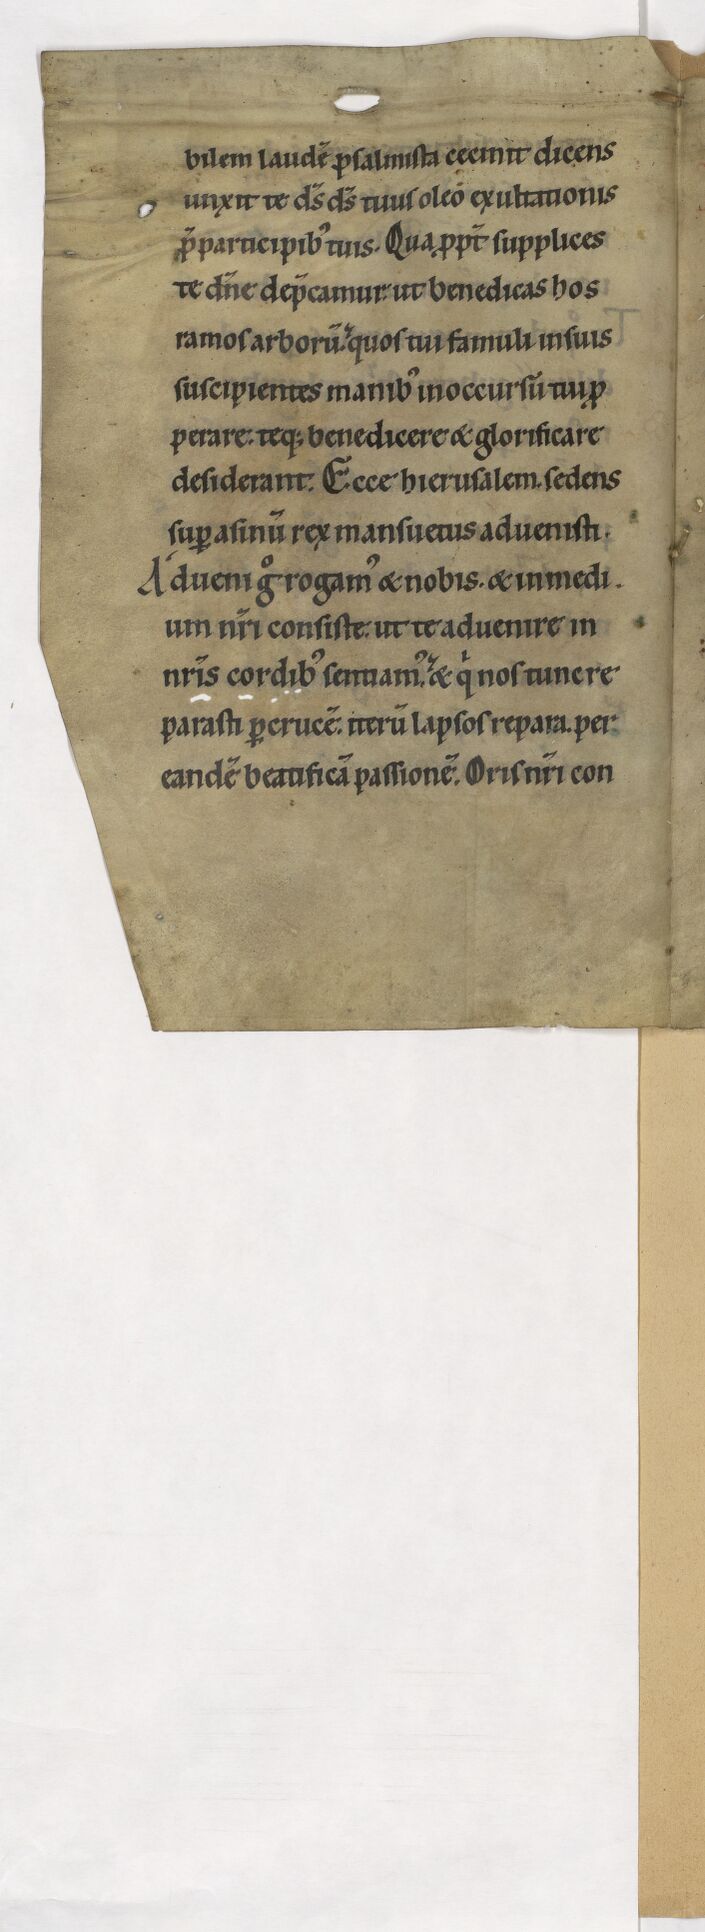 bilem laudē psalmista cecinit dicens
unxit te d̄s d̄s tuus oleo exultationis
p̄ participib᾽ tuis. Qua ꝓpt̄ supplices
te dn̄e dep̄camur. ut benedicas hos
ramos arborū. quos tui famuli in suis
suscipientes manib᾽ in occursū tui ꝓ
perare. teq; benedicere & glorificare
desiderant. Ecce hierusalem. sedens
suꝑ asinū rex mansuetus aduenisti.
Adueni gͦ rogam᾽ & nobis. & in medi
um nr̄i consiste. ut te aduenire in
nr̄is cordib᾽ sentiam᾽. & qͥ nos tunc re
parasti ꝑ crucē. iterū lapsos repara. per
eandē beatificā passionē. Oris nr̄i con